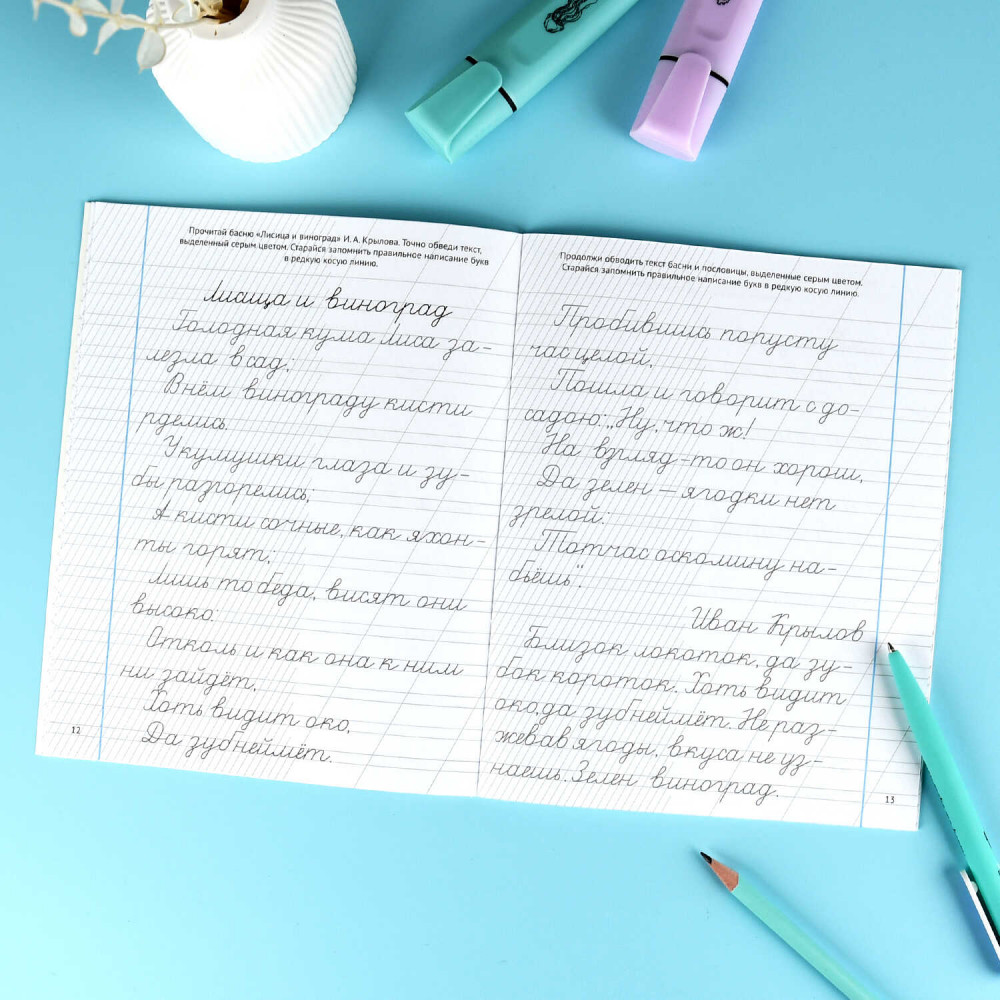 Прочитай басню «Лисица и виноград» И. А. Крылова. Точно обведи текст,
выделенный серым цветом. Старайся запомнить правильное написание букв
в редкую косую линию.
Лисица и виноград
Голодная кума Лиса за-
лезла в сад;
В нём винограду кисти
рделись.
У кумушки глаза и зу-
бы разгорелись;
А кисти сочные, как яхон-
ты горят;
Лишь то беда, висят они
высоко:
Отколь и как она к ним
ни зайдёт,
Хоть видит око,
Да зуб неймёт.
12
Продолжи обводить текст басни и пословицы, выделенные серым цветом.
Старайся запомнить правильное написание букв в редкую косую линию.
Пробившись попусту
час целой,
Пошла и говорит с до-
садою: „Ну, что ж!
На взгляд-то он хорош,
Да зелен — ягодки нет
зрелой:
Тотчас оскомину на-
бьёшь".
Иван Крылов
Близок локоток, да зу-
бок короток. Хоть видит
око, да зуб неймёт. Не раз-
жевав ягоды, вкуса не уз-
наешь. Зелен виноград.
13